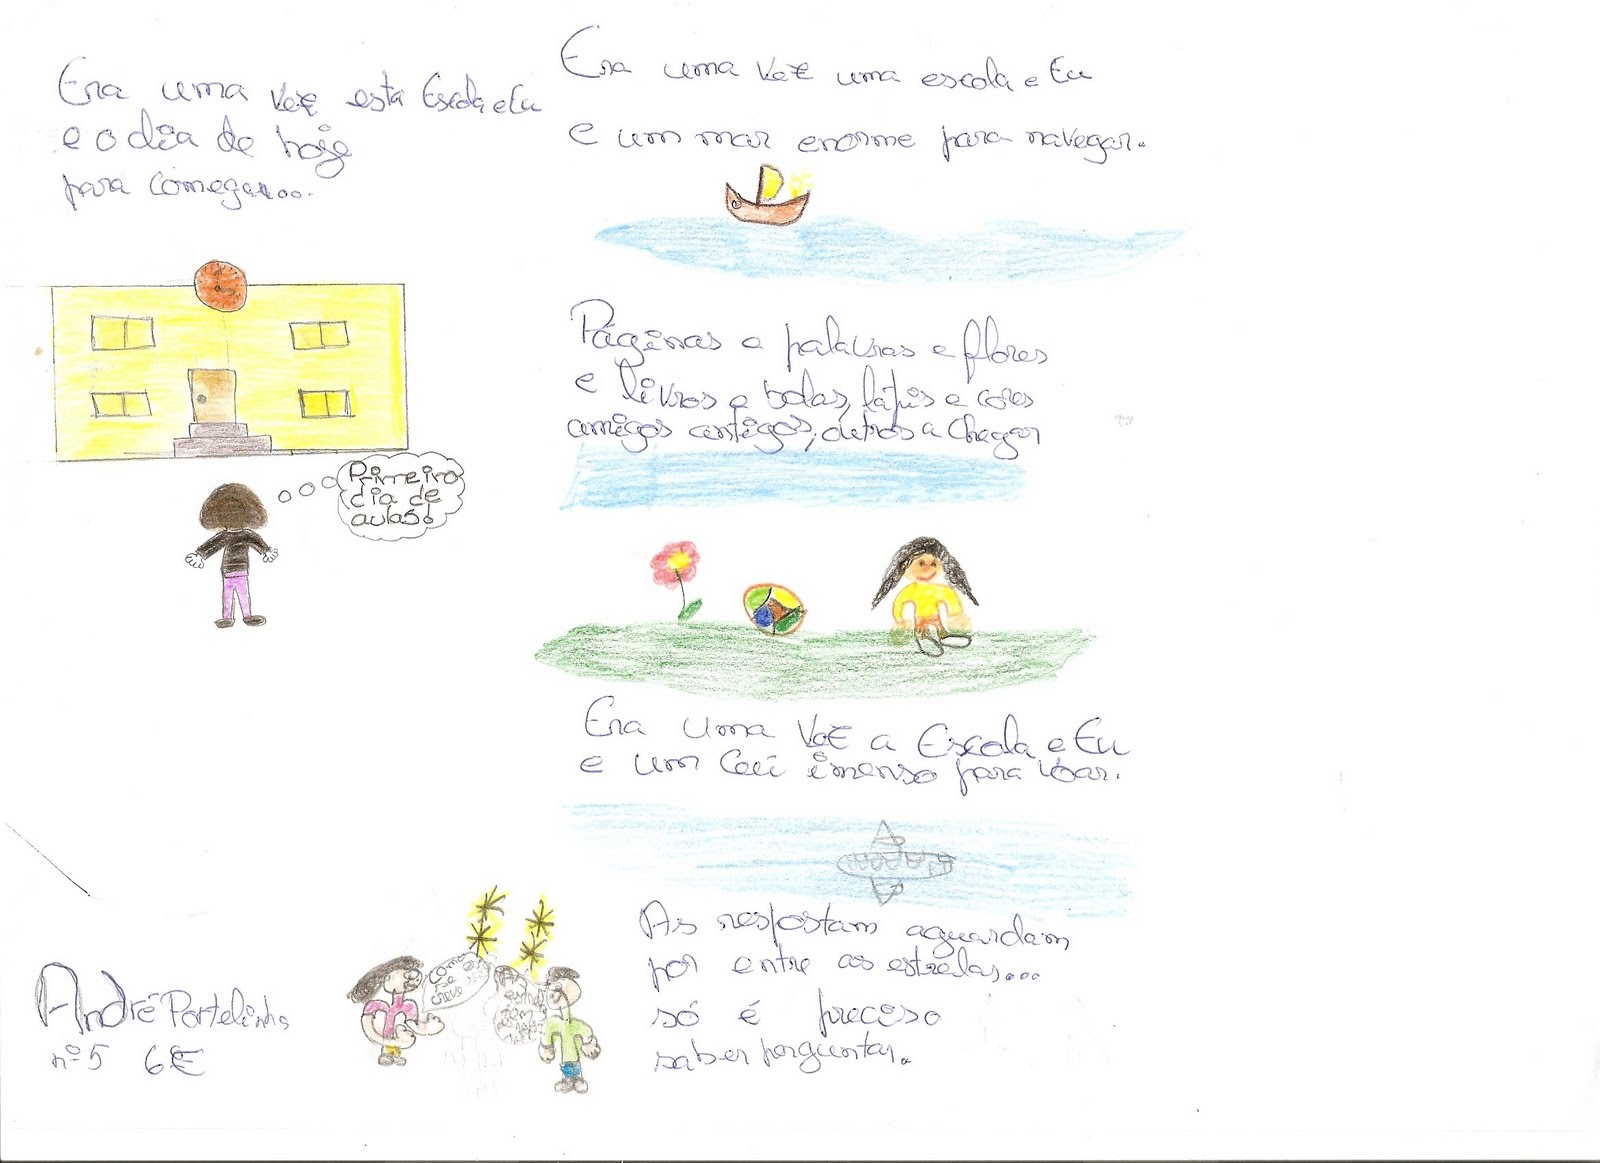 Era uma vez esta Escola e Eu
e o dia de hoje
para começar...
Primeiro
dia de
aulas!
Era uma vez uma escola e Eu
e um mar enorme para navegar.
Páginas e palavras e flores
e livros e bolas, lápis e cores
amigos antigos, outros a chegar
Era uma vez a Escola e Eu
e um Céu imenso para voar.
As respostam aguardam
por entre as estrelas...
só é preciso
saber perguntar.
Como
se
As
tem
André Portelinha
nº5 6E